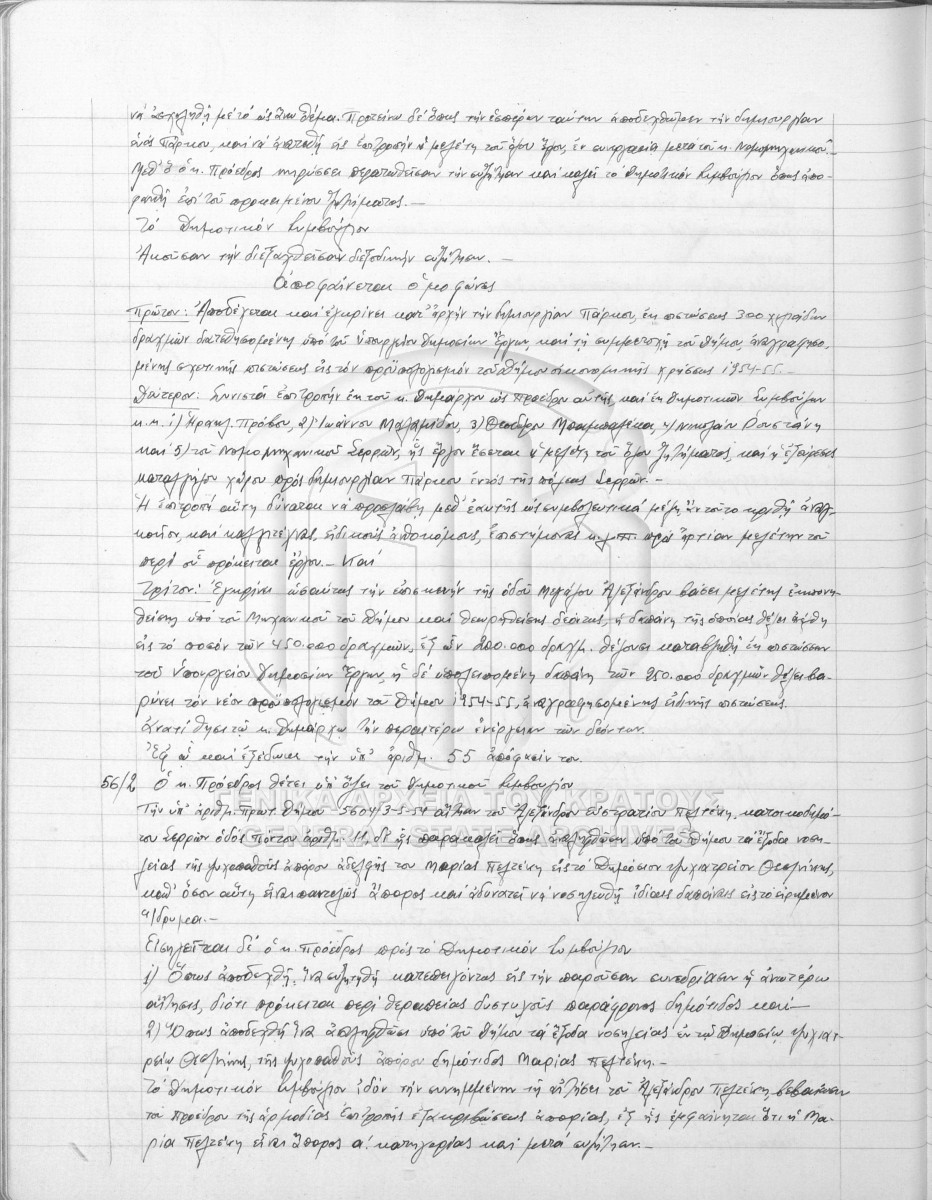 νά ἀσχοληθῇ μέ τό ὡς ἄνω θέμα. Προτείνω δέ ὅπως τήν ἑσπέραν ταύτην ἀποδεχθῶμεν τήν δημιουργίαν
ἑνός Πάρκου, καί νά ἀνατεθῇ εἰς ἐπιτροπήν ἡ μελέτη τοῦ ὅλου ἔργου, ἐν συνεργασίᾳ μετά τοῦ κ. Νομομηχανικοῦ.
Μεθ' ὅ ὁ κ. Πρόεδρος κηρύσσει περατωθεῖσαν τήν συζήτησιν καί καλεῖ τό Δημοτικόν Συμβούλιον ὅπως ἀπο-
φανθῇ ἐπί τοῦ προκειμένου ζητήματος.—
Τό Δημοτικόν Συμβούλιον
Ἀκοῦσαν τήν διεξαχθεῖσαν διεξοδικήν συζήτησιν.—
Ἀποφαίνεται ὁμοφώνως
Πρῶτον: Ἀποδέχεται καί ἐγκρίνει κατ' ἀρχήν τήν δημιουργίαν Πάρκου, ἐκ πιστώσεως 300 χιλιάδων
δραχμῶν διατεθησομένης ὑπό τοῦ Ὑπουργείου Δημοσίων Ἔργων, καί τῇ συμμετοχῇ τοῦ Δήμου, ἀναγραφησο-
μένης σχετικῆς πιστώσεως εἰς τόν προϋπολογισμόν τοῦ Δήμου οἰκονομικῆς χρήσεως 1954-55.—
Δεύτερον: Συνιστᾷ ἐπιτροπήν ἐκ τοῦ κ. Δημάρχου ὡς Προέδρου αὐτῆς καί ἐκ Δημοτικῶν Συμβούλων
κ.κ. 1) Ἡρακλ. Πρόβου, 2) Ἰωάννου Μαλαμίδου, 3) Θεοδώρου Μπαμπαλίκα, 4) Νικολάου Ρουστάνη
καί 5) τοῦ Νομομηχανικοῦ Σερρῶν, ἧς ἔργον ἔσεται ἡ μελέτη τοῦ ὅλου ζητήματος, καί ἡ ἐξεύρεσις
καταλλήλου χώρου πρός δημιουργίαν Πάρκου ἐντός τῆς πόλεως Σερρῶν.—
Ἡ ἐπιτροπή αὕτη δύναται νά προσλάβῃ μεθ' ἑαυτῆς ὡς συμβουλευτικά μέλη, ἄν τοῦτο κριθῇ ἀναγ-
καῖον, καί καλλιτέχνας, εἰδικούς ἀνθοκόμους, ἐπιστήμονας κ.λ.π. πρός ἀρτίαν μελέτην τοῦ
περί οὗ πρόκειται ἔργου.— Καί
Τρίτον: Ἐγκρίνει ὡσαύτως τήν ἐπισκευήν τῆς ὁδοῦ Μεγάλου Ἀλεξάνδρου βάσει μελέτης ἐκπονη-
θείσης ὑπό τοῦ Μηχανικοῦ τοῦ Δήμου καί θεωρηθείσης δεόντως, ἡ δαπάνη τῆς ὁποίας θέλει ἀνέλθῃ
εἰς τό ποσόν τῶν 450.000 δραχμῶν, ἐξ ὧν 200.000 δραχμ. θέλουσι καταβληθῇ ἐκ πιστώσεων
τοῦ Ὑπουργείου Δημοσίων Ἔργων, ἡ δέ ὑπολειπομένη δαπάνη τῶν 250.000 δραχμῶν θέλει βα-
ρύνει τόν νέον προϋπολογισμόν τοῦ Δήμου 1954-55, ἀναγραφησομένης εἰδικῆς πιστώσεως.
Ἀνατίθησι τῷ κ. Δημάρχῳ τήν περαιτέρω ἐνέργειαν τῶν δεόντων.
Ἐφ' ᾧ καί ἐξέδωκε τήν ὑπ' ἀριθμ. 55 ἀπόφασίν του.
56/2 Ὁ κ. Πρόεδρος θέτει ὑπ' ὄψει τοῦ Δημοτικοῦ Συμβουλίου
Τήν ὑπ' ἀριθμ. πρωτ. Δήμου 5604/3-5-54 αἴτησιν τοῦ Ἀλεξάνδρου Εὐστρατίου Πελτέκη, κατοίκου δήμο-
του Σερρῶν ὁδός Πόντου ἀριθμ. 11, δι' ἧς παρακαλεῖ ὅπως ἀναληφθῶσιν ὑπό τοῦ Δήμου τά ἔξοδα νοση-
λείας τῆς ψυχοπαθοῦς ἀπόρου ἀδελφῆς του Μαρίας Πελτέκη εἰς τό Δημόσιον Ψυχιατρεῖον Θεσ/νίκης,
καθ' ὅσον αὕτη εἶναι παντελῶς ἄπορος καί ἀδυνατεῖ νά νοσηλευθῇ ἰδίαις δαπάναις εἰς τό εἰρημένον
ἵδρυμα.—
Εἰσηγεῖται δέ ὁ κ. Πρόεδρος πρός τό Δημοτικόν Συμβούλιον
1) Ὅπως ἀποδεχθῇ, ἵνα συζητηθῇ κατεπειγόντως εἰς τήν παροῦσαν συνεδρίασιν ἡ ἀνωτέρω
αἴτησις, διότι πρόκειται περί θεραπείας δυστυχοῦς παράφρονος δημότιδος καί—
2) Ὅπως ἀποδεχθῇ ἵνα ἀναληφθῶσι ὑπό τοῦ Δήμου τά ἔξοδα νοσηλείας ἐν τῷ Δημοσίῳ Ψυχιατ-
ρείῳ Θεσ/νίκης, τῆς ψυχοπαθοῦς ἀπόρου δημότιδος Μαρίας Πελτέκη.—
Τό Δημοτικόν Συμβούλιον ἰδόν τήν συνημμένην τῇ αἰτήσει τοῦ Ἀλεξάνδρου Πελτέκη, βεβαίωσιν
τοῦ Προέδρου τῆς ἁρμοδίας ἐπιτροπῆς ἐξακριβώσεως ἀπορίας, ἐξ ἧς ἐμφαίνηται ὅτι ἡ Μα-
ρία Πελτέκη εἶναι ἄπορος α' κατηγορίας καί μετά συζήτησιν.—
ΓΕΝΙΚΑ ΑΡΧΕΙΑ ΤΟΥ ΚΡΑΤΟΥΣ
GENERAL STATE ARCHIVES